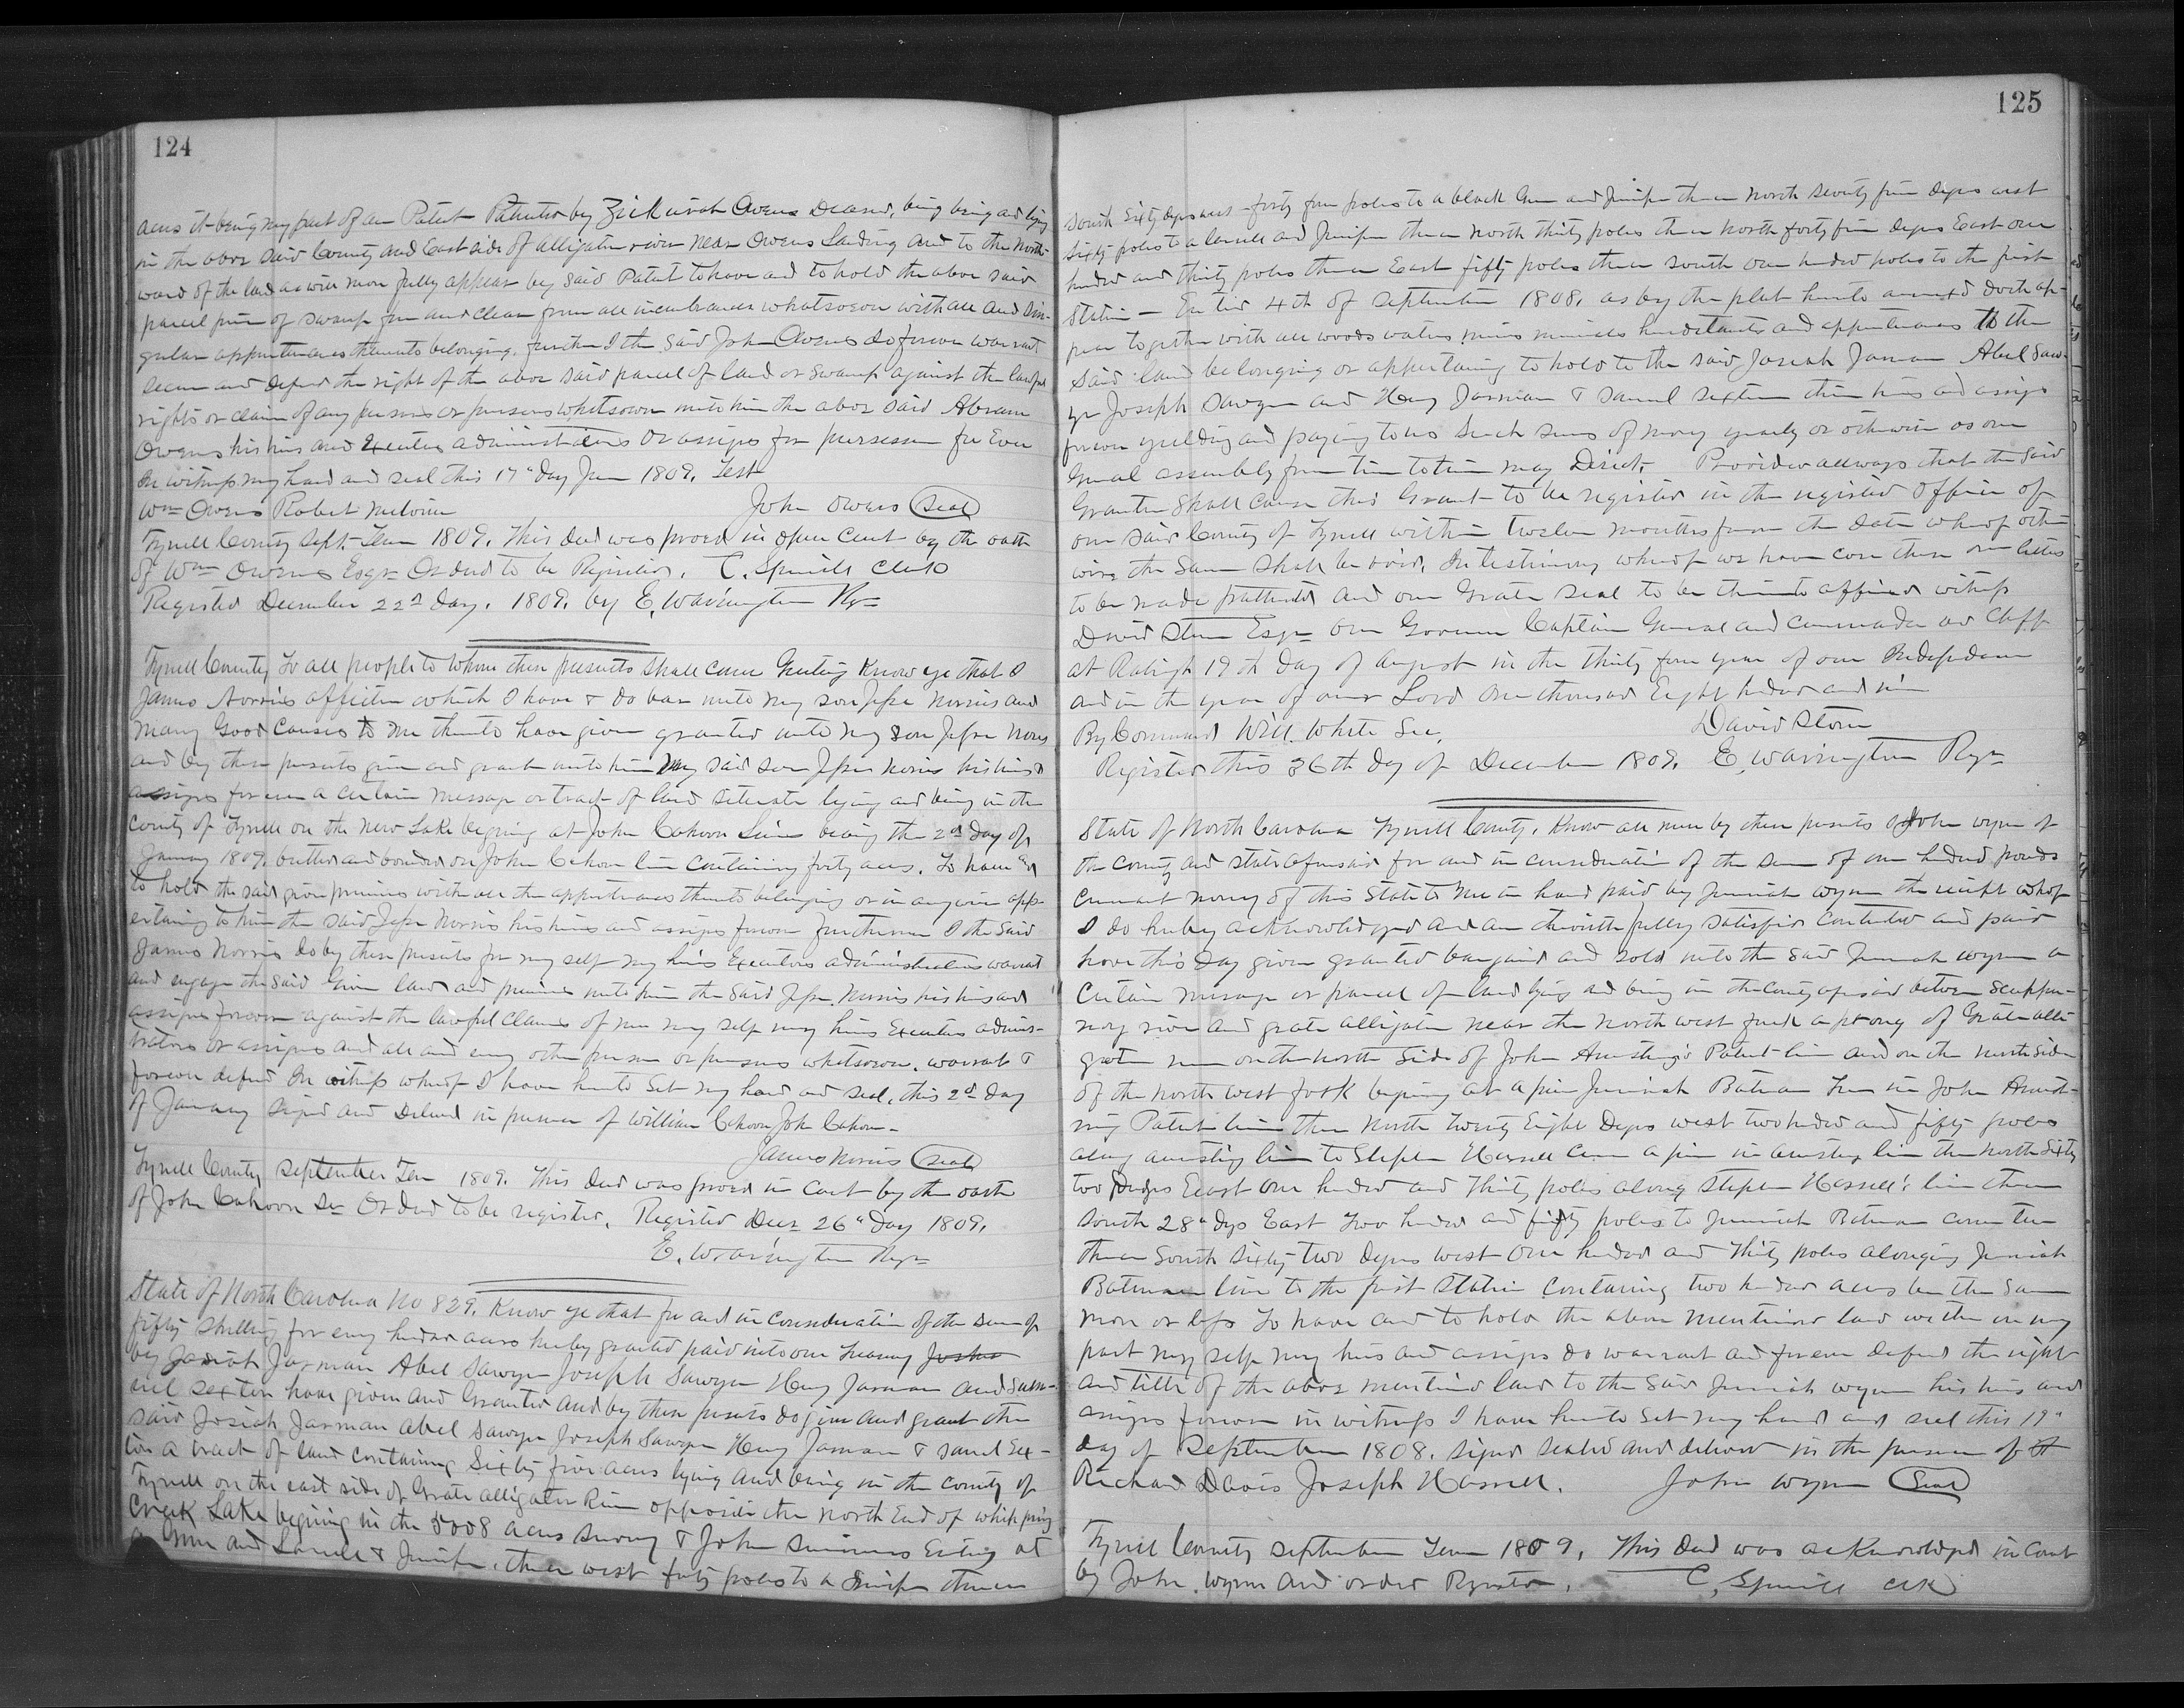 124
acres it being my part of an Patent Patented by Zeckariah Owens Deceased, being being and lying
in the above said County and East side of alligator river near Owens Landing and to the North-
ward of the land as will more fully appear by said Patent to have and to hold the above said
parcel of swamp free and clear from all incumbrances whatsoever with all and Sin-
gular appurtenances thereunto belonging. further I the said John Owens do forever warrant
secure and defend the right of the above said parcel of land or swamp against the lawful
rights or claim of any persons or persons whatsoever unto him the above said Abram
Owens his heirs and Executors administrators or assigns for possession for Ever
In witness my hand and seal this 17th Day June 1809. Test
Wm Owens Robert Melvin John Owens (Seal)
Tyrrell County Sept. Term 1809. This deed was proved in open Court by the oath
of Wm Owens Esqr Ordered to be Registered. C. Spruill Clerk
Registered December 22d day. 1809. by E. Warrington Regr
Tyrrell County To all people to whom these presents shall come Greeting Know ye that I
James Norris affection which I have & do bear unto my son Jesse Norris and
many Good Causes to me thereunto have given granted unto my son Jesse Norris
and by these presents give and grant unto him my said son Jesse Norris his heirs &
assigns forever a certain message or tract of land situate lying and being in the
county of Tyrrell on the New Lake begining at John Cahoon Line being the 2d day of
January 1809. butted and bounded on John Cahoon line containing forty acres. To have and
to hold the said given premises with all the appurtenances thereunto belonging or in any wise app-
ertaining to him the said Jesse Norris his heirs and assigns forever furthermore I the said
James Norris do by these presents for my self my heirs Executors administrators warrant
and engage the said Given land and premises unto him the said Jesse Norris his heirs and
assigns forever against the lawful Claims of me my self my heirs Executors adminis-
trators or assigns and all and every other person or persons whatsoever. warrant &
forever defend In witness whereof I have hereunto Set my hand and seal, this 2d day
of January Signed and Delivered in presence of William Cahoon John Cahoon-
James Norris (Seal)
Tyrrell County September Term 1809. This deed was proved in Court by the oath
of John Cahoon Sr Ordered to be register. Registered Decr 26th Day 1809.
E. Warrington Regr
State of North Carolina No 829. Know ye that for and in Consideration of the sum of
fifty shillings for every hundred acres hereby granted paid into our Treasury Joshua
by Josiah Jarman Abel Sawyer Joseph Sawyer Henry Jarman and Sam-
uel Sexton have given and Granted and by these presents do give and grant the
said Josiah Jarman Abel Sawyer Joseph Sawyer Henry Jarman & Samuel Sex-
ton a tract of land containing Sixty five acres lying and being in the County of
Tyrrell on the east side of Grate alligator River opposite the North End of whipping
Creek Lake begining in the 5008 acres survey & John Simmons Entry at
a Gum and Laurell & Juniper. thence west forty poles to a Juniper thence
125
South Sixty degrees west forty four poles to a black Gum and Juniper thence North seventy five degres west
Sixty poles to a laurell and Juniper thence North thirty poles thence North forty five degres East one
hundred and thirty poles thence East fifty poles thence South one hundred poles to the first
Station — Entered 4th of September 1808. as by the plat hereto annexed doth ap-
pear together with all woods waters mines minerals hereditaments and appurtenances to the
said land belonging or appertaining to hold to the said Josiah Jarman Abel Saw-
yer Joseph Sawyer and Henry Jarman & Samuel Sexton their heirs and assigns
forever yeilding and paying to us Such sums of money yearly or otherwise as our
General assembly from time to time may Direct. Provided allways that the said
Grantee shall cause this Grant to be register in the register Office of
our said County of Tyrrell within twelve months from the date whereof other
wise the same shall be void. In testimony whereof we have cause these our letters
to be made patented and our Grate seal to be thereunto affixed witness
David Stone Esqr our Governor Captain General and Commander in Cheff
at Raleigh 19th day of August in the thirty four year of our Independence
and in the year of our Lord One thousand Eight hundred and nine
By Command Will. White Sec. David Stone
Registered this 26th day of December 1809. E. Warrington Regr
State of North Carolina Tyrrell County. Know all men by these presents I John Wynn of
the County and State aforesaid for and in consideration of the sum of one hundred pounds
Current money of this State to me in hand paid by Jeremiah Wynn the receipt whereof
I do hereby acknowledged and am therewith fully satisfied Contented and paid
have this day given granted bargained and sold unto the said Jeremiah Wynn a
Certain message or parcel of land lying and being in the County aforesaid between Scupper-
nong river and grate alligator near the north west fork a prong of Grate alli
gator river on the north side of John Armstrong's Patent line and on the north side
of the north west fork begining at a pine Jeremiah Bateman Tree in John Armst-
rong Patent line then North twenty Eight Degres west two hundred and fifty poles
along armstrong line to Stephen Hassell Corner a pine in armstrong line then North Sixty
two Degres East One hundred and thirty poles along Stephen Hassell's line then
South 28th degs East Two hundred and fifty poles to Jeremiah Bateman corner tree
thence South Sixty two degres west One hundred and thirty poles alonging Jeremiah
Bateman line to the first Station Containing two hundred acres be the same
more or less To have and to hold the above mentioned land on my
part my self my heirs and assigns do warrant and forever defend the right
and title of the above mentioned land to the said Jeremiah Wynn his heirs and
assigns forever in witness I have hereunto set my hand and seal this 19th
day of September 1808. signed sealed and delivered in the presence of
Richard Davis Joseph Hassell. John Wynn (Seal)
Tyrrell County September Term 1809. This Deed was acknowledged in Court
by John Wynn and order Register. C. Spruill Clk